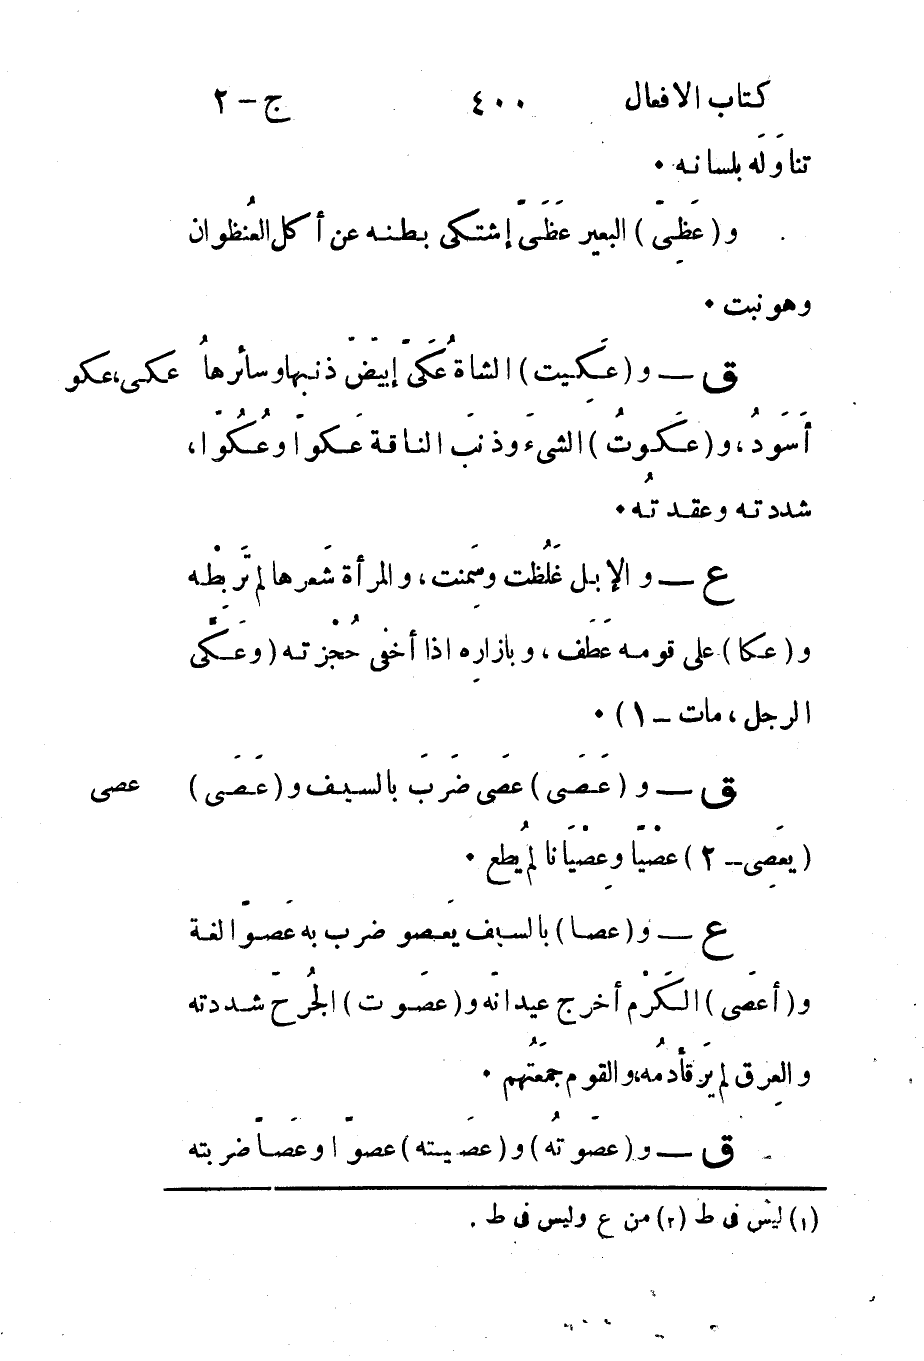 كتاب الافعال ٤٠٠ ج – ٢
تناوَلَه بلسانه •
و (عَظِىَ) البعير عَظَىً إشتكى بطنه عن أكل العُنظوان
وهو نبت •
ق — و (عَكِيت) الشاة عُكَىً إبيَضّ ذنبها وسائرها عكى، عكو
أَسوَدُ ، و (عَكَوتُ) الشىءَ وذنبَ الناقة عَكواً وعُكُوّاً ،
شددته وعقدتُه •
ع — و الإبل غَلُظت وسَمِنت ، والمرأة شَعرها لم تَربِطْه
و (عكا) على قومه عَطَف ، وبازاره اذا أخفى حُجْزته (وعَكَّى
الرجل ، مات – ١) •
ق — و (عَصَى) عصَى ضرَبَ بالسيف و (عَصَى) عصى
(يعَصِى – ٢) عصْيّاً وعِصْيَانا لم يُطع •
ع — و (عصا) بالسيف يَعصو ضرب به عَصوّا لغة
و (أعصَى) الكَرْم أخرج عيدانّه و (عصَوت) الجُرحّ شددته
والعِرق لم يَرقأ دمُه، والقوم جمَعتُهم •
ق — و (عصَوتُه) و (عصَيته) عصوّا وعَصاً ضربته
(١) ليس فى ط (٢) من ع وليس فى ط .